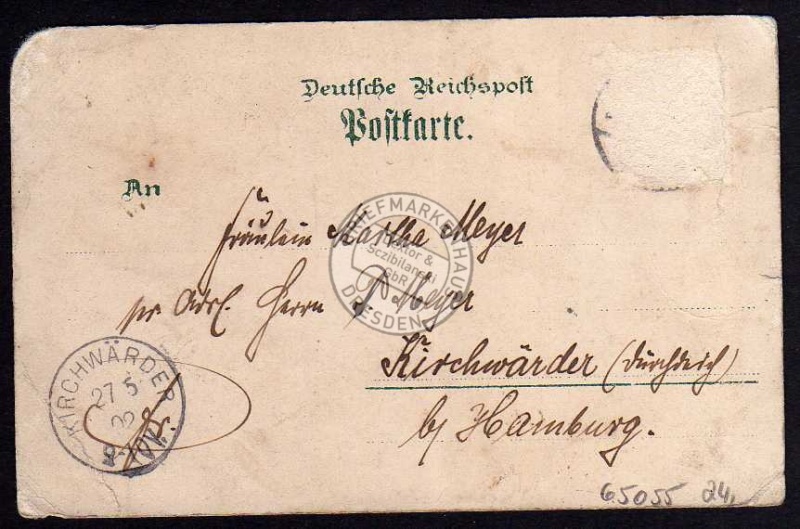 Deutsche Reichspost
Postkarte.
An
Fräulein Martha Meyer
pr Adr. Herrn J Meyer
Kirchwärder (Durchdeich)
b/ Hamburg.
KIRCHWÄRDER
27 5
02
BRIEFMARKENHAUS
Hektor &
Sczibilanski
GbR
DRESDEN
65055 24,